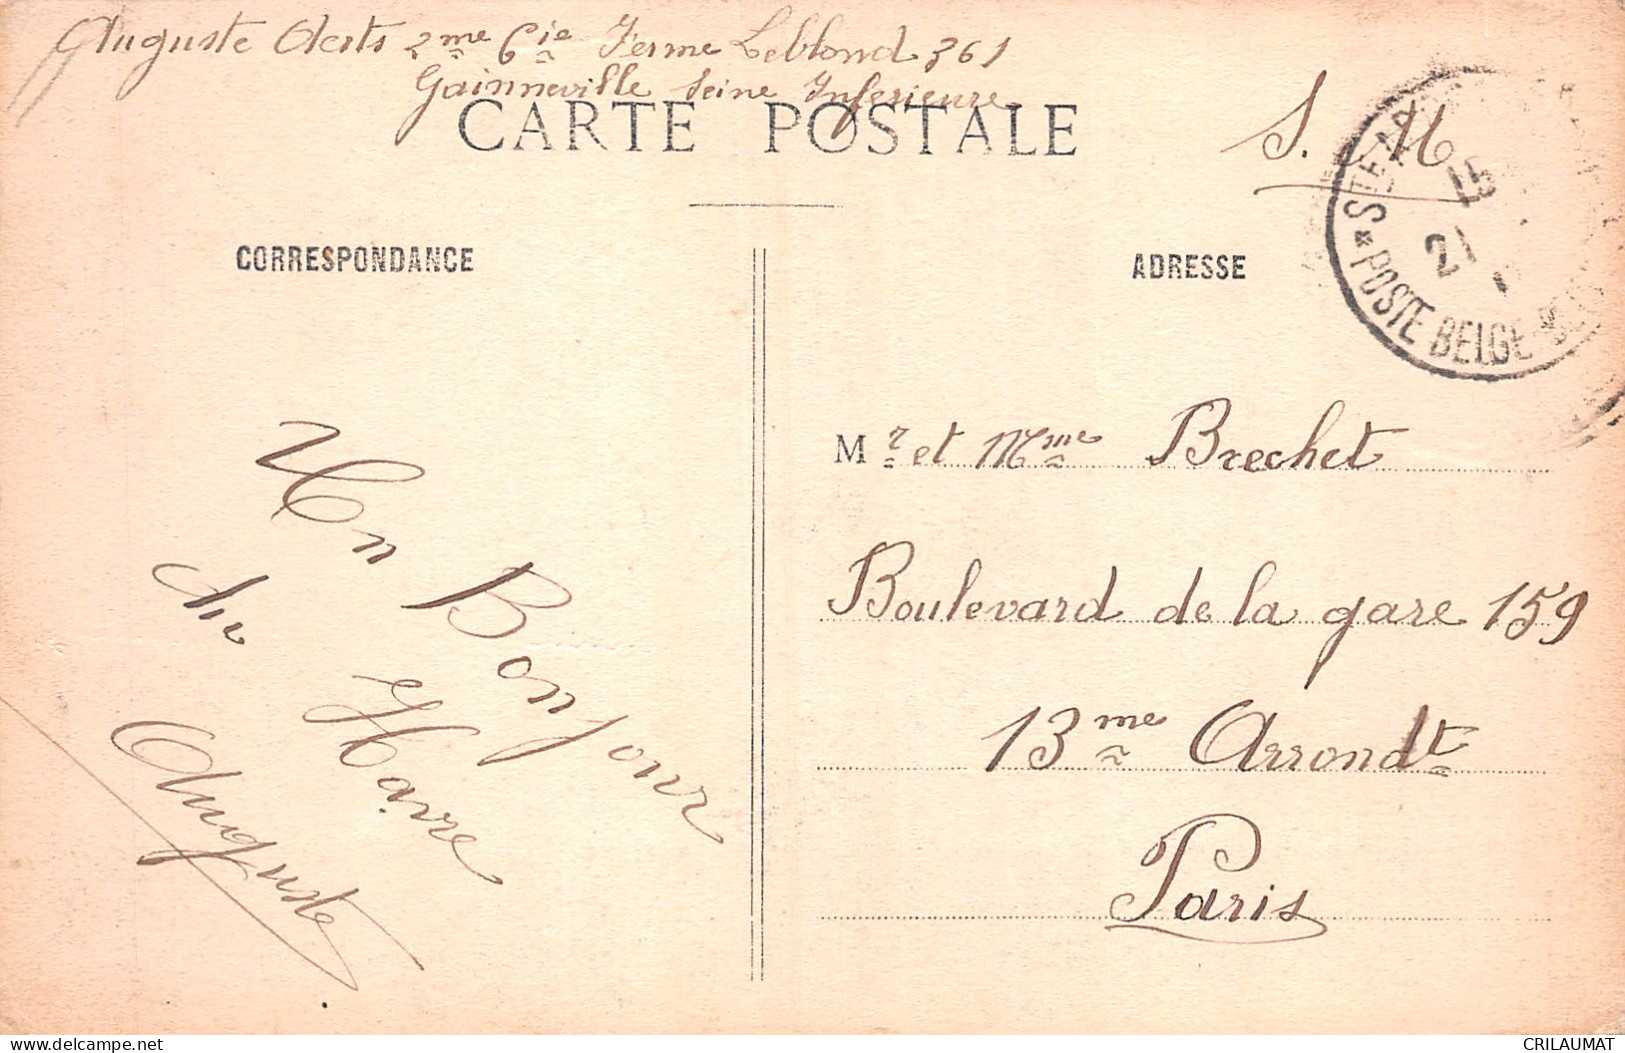 Auguste Aerts 2me Cie Ferme Leblond 361
Gainneville Seine Inferieure
CARTE POSTALE
S. M
STE AD
15
21
POSTE BELGE
CORRESPONDANCE
ADRESSE
Un Bonjour
du Havre
Auguste
Mr et Mme Brechet
Boulevard de la gare 159
13me Arrondt
Paris
delcampe.net
CRILAUMAT